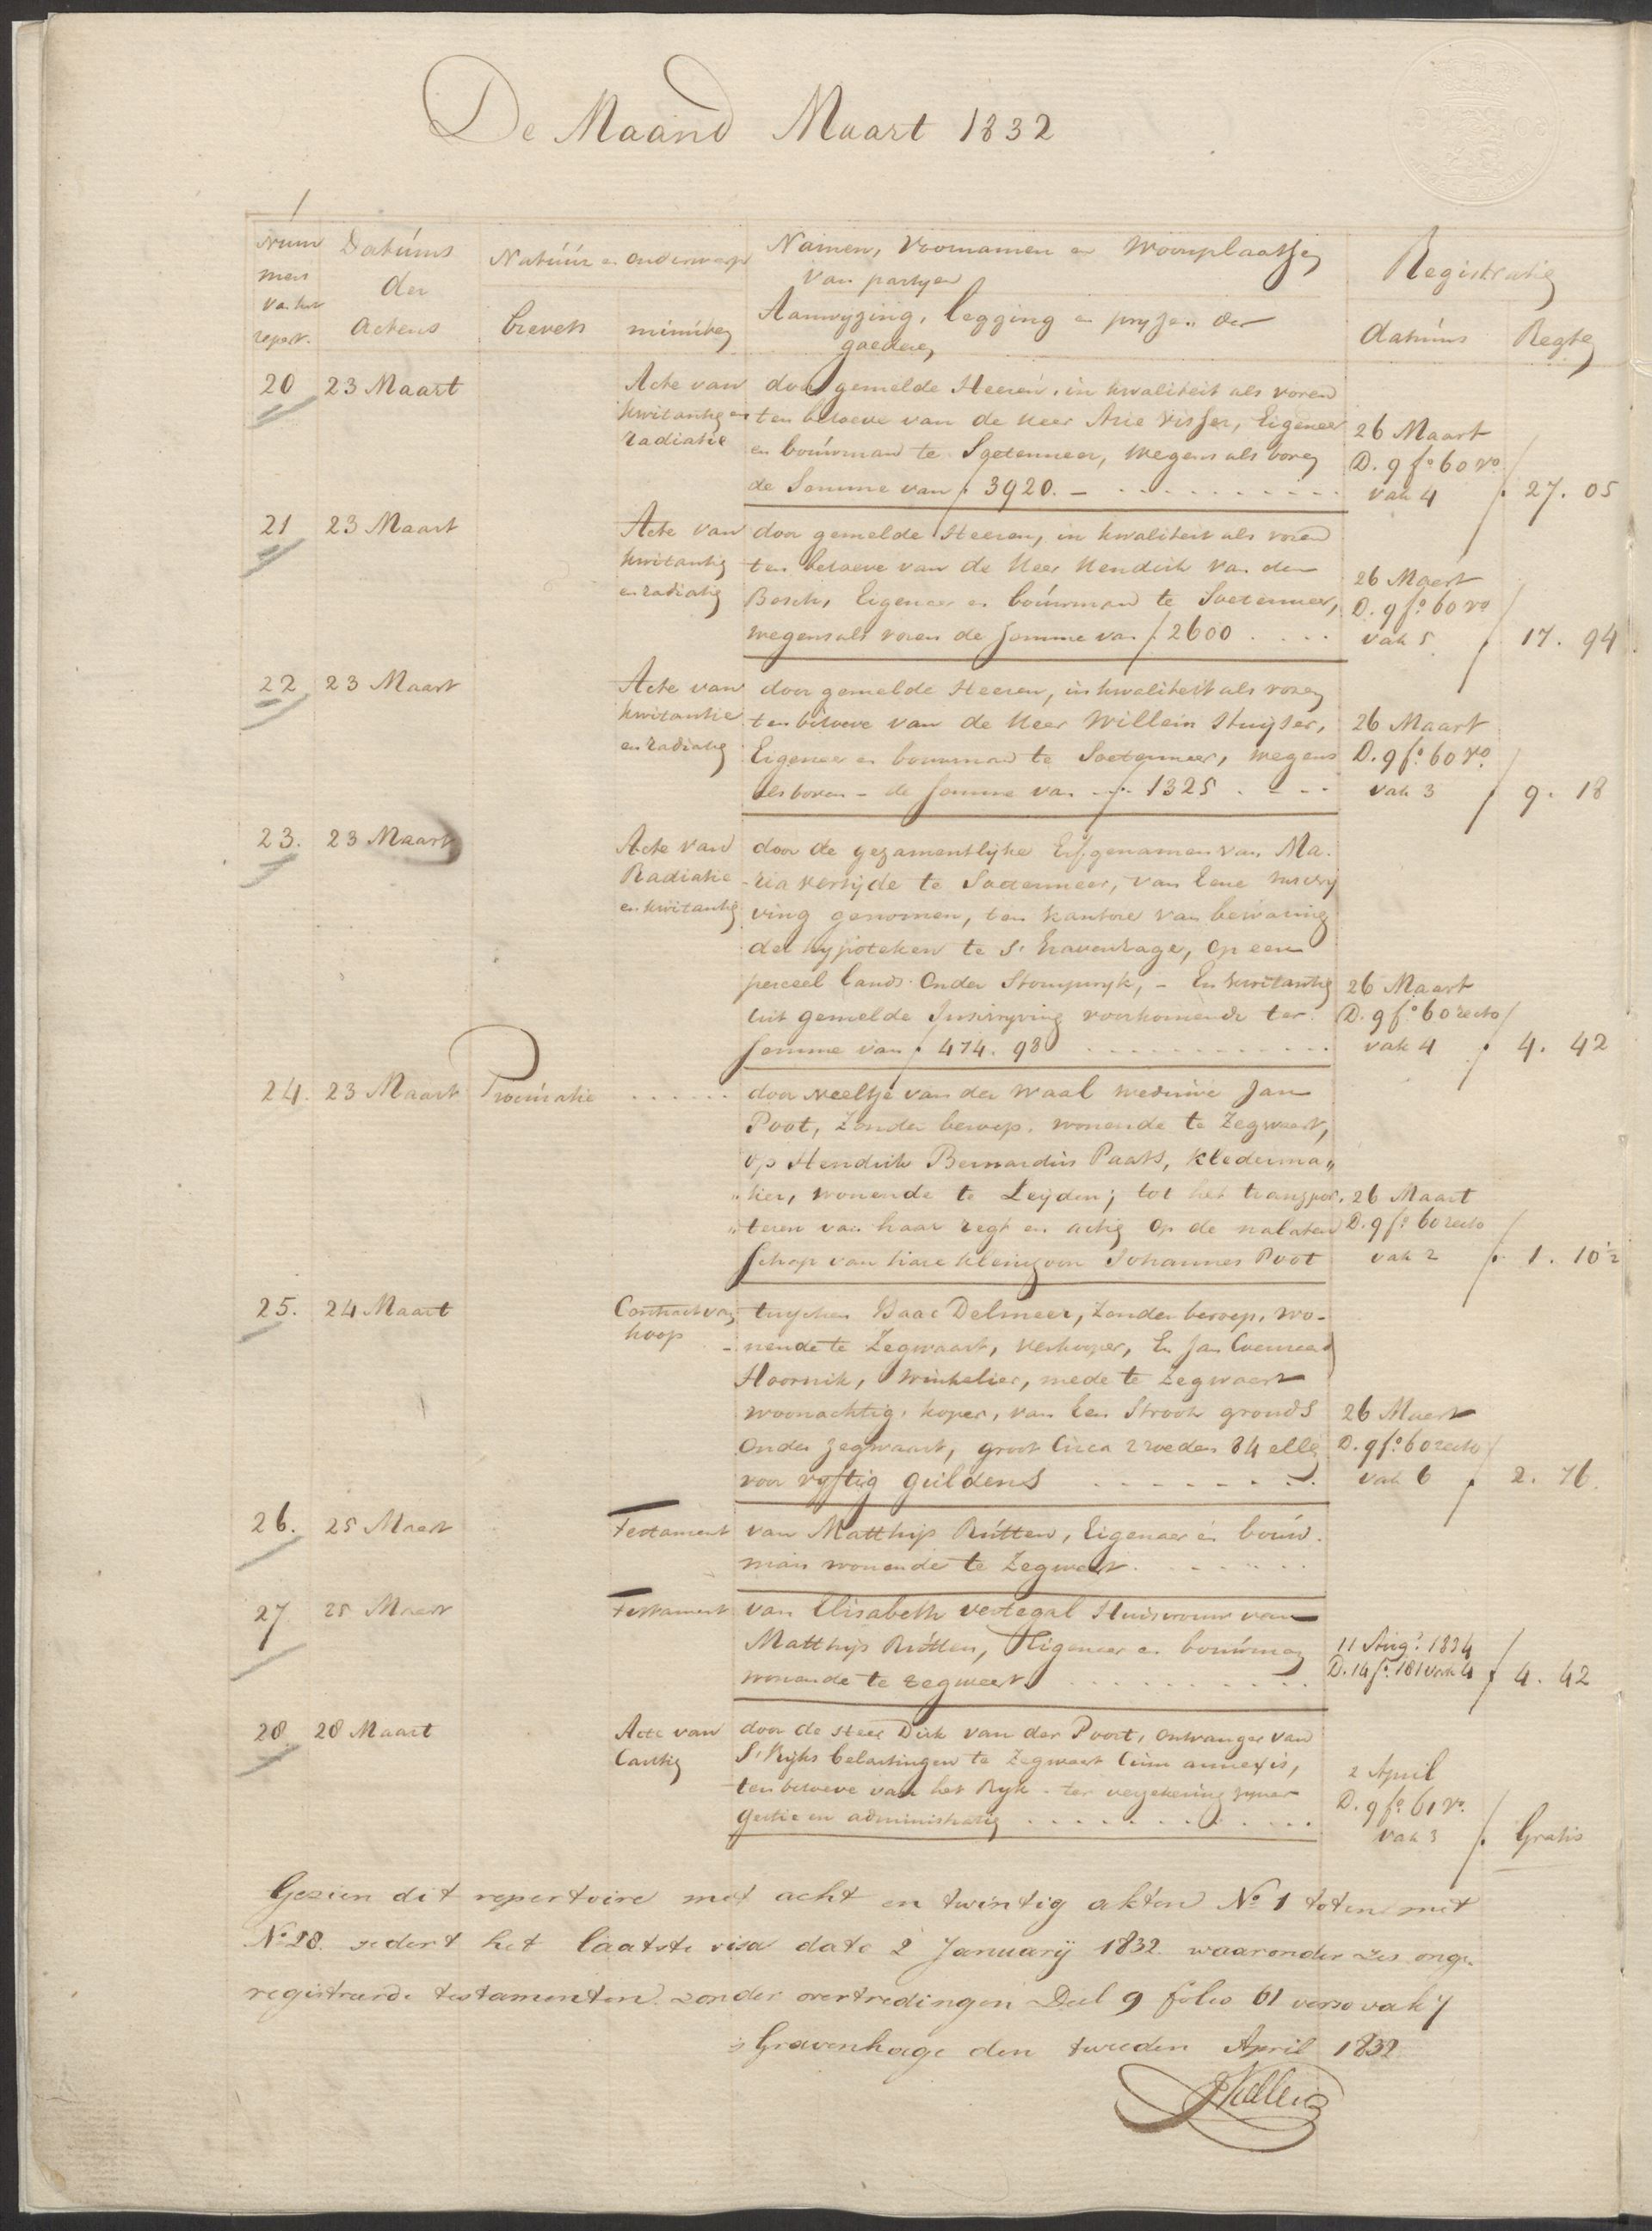 De Maand Maart 1832
Num
mers
van het
repert.
Datúms
der
Actens
Natúúr en onderwerp
brevets
minúten
Namen, Voornamen en Woonplaatsen
van partyen
Aanwyzing, legging en pryzen der
goederen
Registratie
datúms
Regten
20 23 Maart
Acte van
kwitantie en
radiatie
door gemelde Heeren, in kwaliteit als voren
ten behoeve van de Heer Arie Visser, Eigenaer
en boúwman te Soetermeer, wegens als voren
de Somme van ƒ 3920. -
26 Maart
D. 9 fo. 60 vo.
vak 4 ƒ 27. 05
21 23 Maart
Acte van
kwitantie
en radiatie
door gemelde Heeren, in kwaliteit als voren
ten behoeve van de Heer Hendrik van den
Bosch, Eigenaer en boúwman te Soetermeer,
wegens als voren de somme van ƒ 2600
26 Maert
D. 9 fo. 60 vo
vak 5 ƒ 17. 94
22 23 Maart
Acte van
kwitantie
en radiatie
door gemelde Heeren, in kwaliteit als voren
ten behoeve van de Heer Willem Stuyser,
Eigenaer en bouwman te Soetermeer, wegens
als boven - de somme van ƒ 1325
26 Maart
D. 9 fo. 60 vo.
vak 3 ƒ 9. 18
23. 23 Maart
Acte van
Radiatie
en kwitantie
door de gezamentlyke Erfgenamen van Ma-
-ria Versyde te Soetermeer, van eene inscry
ving genomen, ten kantore van bewaring
der hypoteken te S' Gravenhage, op een
perceel lands onder Stompwyk, - En kwitantie
uit gemelde Inscryving voorkomende ter
somme van ƒ 474. 98
26 Maart
D. 9 fo. 60 recto
vak 4 ƒ 4. 42
24. 23 Maart Procúratie
door Neeltje van der Waal weduwe Jan
Poot, Zonder beroep, wonende te Zegwaart,
op Hendrik Bernardús Paats, klederma„
„ker, wonende te Leyden; tot het transpor„
„teren van haar regt en actie op de nalaten
schap van hare kleinzoon Johannes Poot
26 Maart
D. 9 fo. 60 recto
vak 2 ƒ 1. 10½
25. 24 Maart
Contract van
koop
tusschen Isaac Delmeer, Zonder beroep, wo-
-nende te Zegwaart, verkooper, En Jan Coenraad
Hoornik, Winkelier, mede te Zegwaart
woonachtig, koper, van Een Strook gronds
onder Zegwaart, groot Circa 2 roeden 84 ellen
voor vyftig guldens
26 Maert
D. 9 fo. 60 recto
vak 6 ƒ 2. 76
26. 25 Maert
Testament van Matthijs Rútten, Eigenaer en boúw-
man wonende te Zegwaert
27 25 Maert
Testament van Elisabeth Vertegal Huisvrouw van
Matthijs Rútten, Eigenaer en boúwman
wonende te Zegwaert
11 Aug. 1834
D. 14 fo. 181 vak 4 ƒ 4. 42
28. 28 Maart
Acte van
Cautie
door de Heer Dirk van der Poort, ontvanger van
S' Rijks belastingen te Zegwaart Cum annexis,
ten behoeve van het Ryk - ter verzekering zyner
gestie en administratie
2 April
D. 9 fo. 61 vo.
vak 3 ƒ Gratis
Gezien dit repertoire met acht en twintig akten No 1 tot en met
No 28. sedert het laatste visa dato 2 Januarij 1832 waaronder zes onge-
registreerde testamenten zonder overtredingen Deel 9 folio 61 verso vak 7
's Gravenhage den tweeden April 1832